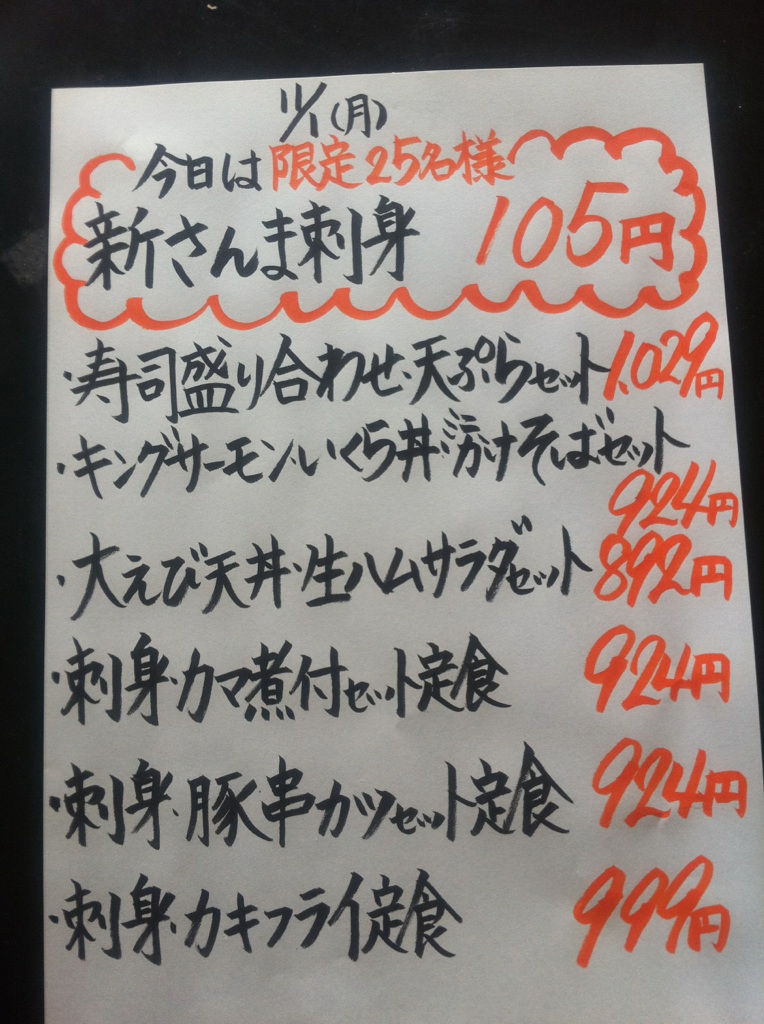 11/1(月)
今日は限定25名様
新さんま刺身 105円
・寿司盛り合わせ・天ぷらセット 1,029円
・キングサーモン・いくら丼・かけそばセット
924円
・大えび天丼・生ハムサラダセット 892円
・刺身・カマ煮付セット定食 924円
・刺身・豚串カツセット定食 924円
・刺身・カキフライ定食 999円